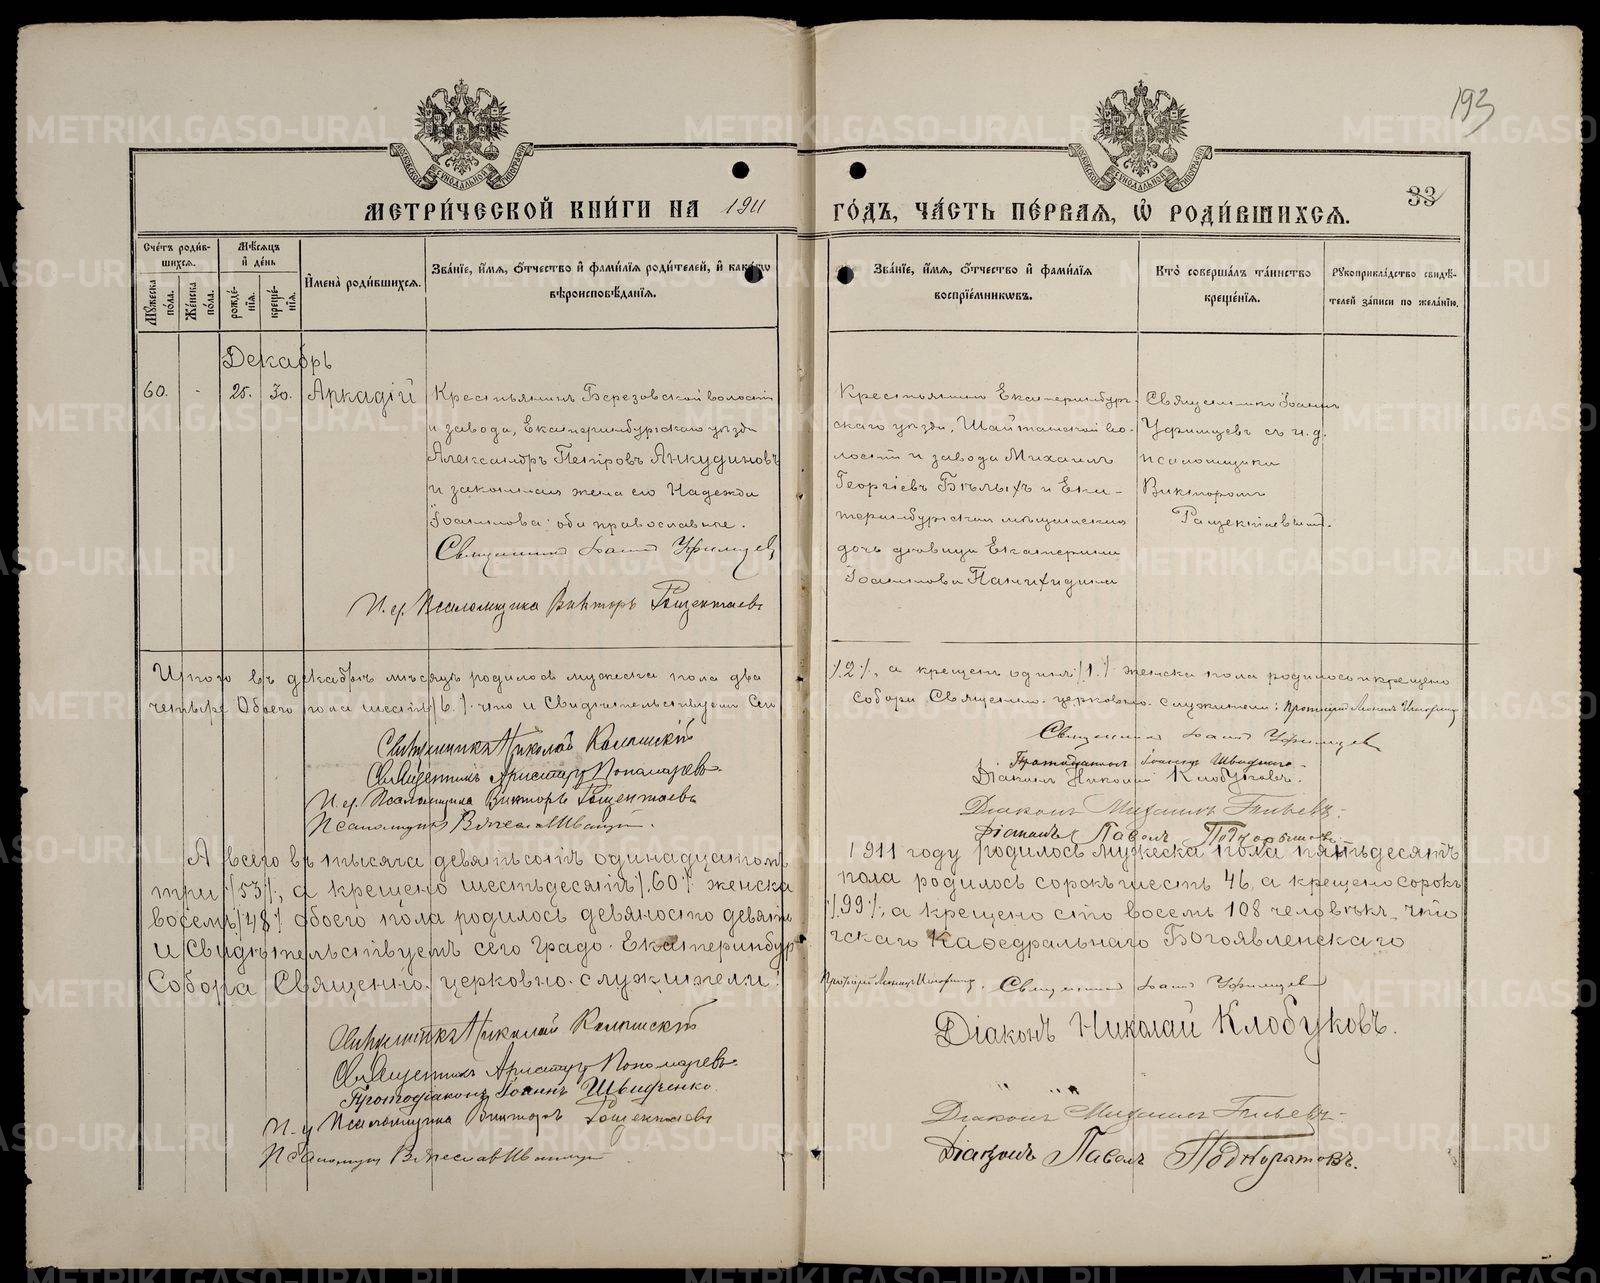 193
33
МЕТРИ́ЧЕСКОЙ КНИ́ГИ НА 1911 ГО́ДЪ, ЧА́СТЬ ПЕ́РВАЯ, Ѡ РОДИ́ВШИХСЯ.
Сче́тъ роди́вшихся.
Мѣ́сяцъ и҆ де́нь
Му́жеска по́ла.
Же́нска по́ла.
рожде́нїя.
креще́нїя.
И҆мена̀ роди́вшихся.
Зва́нїе, и҆́мя, ѻ҆́тчество и҆ фами́лїя роди́телей, и҆ како́гѡ вѣроисповѣ́данїя.
Зва́нїе, и҆́мя, ѻ҆́тчество и҆ фами́лїя воспрїе́мникѡвъ.
Кто̀ соверша́лъ та́инство креще́нїя.
Рукоприкла́дство свидѣ́телей за́писи по жела́нїю.
Декабрь
60.
-
25.
30.
Аркадій
Крестьянинъ Березовской волости
и завода, Екатеринбургскаго уѣзда
Александръ Петровъ Анкудиновъ
и законная жена его Надежда
Іоаннова оба православные.
Священникъ Іоаннъ Уфимцев
И. д. Псаломщика Викторъ
Крестьянинъ Екатеринбург-
скаго уѣзда, Шайтанской во-
лости и завода Михаилъ
Георгіевъ Бѣлыхъ и Ека-
теринбургская мѣщанская
дочь дѣвица Екатерина
Іоаннова Панихидина
Священникъ Іоаннъ
Уфимцевъ съ и. д.
псаломщика
Викторомъ
Итого въ декабрѣ мѣсяцѣ родилось мужеска пола два /.2./., а крещенъ одинъ /.1./. женска пола родилось и крещено
четыре Обоего пола шесть /.6./. что и Свидѣтельствуемъ Сего Собора Священно-церковно-служители: Протоіерей
Священникъ Іоаннъ Уфимцев
Священникъ Николай
Священникъ Аристархъ Пономаревъ.
Протодіаконъ Іоаннъ Швидченко.
Діаконъ Николай Клобуковъ.
И. д. Псаломщика Викторъ
Діаконъ Михаилъ
Псаломщикъ Вячеслав Иваницк
Діаконъ Павелъ
А всего въ тысяча девятьсотъ одинадцатомъ 1911 году родилось мужеска пола пятьдесятъ
три /.53/., а крещено шестьдесятъ /.60/. женска пола родилось сорокъ шесть 46, а крещено сорокъ
восемь /48/. обоего пола родилось девяносто девять /.99/., а крещено сто восемь 108 человѣкъ, что
и Свидѣтельствуемъ сего Градо-Екатеринбургскаго Каѳедральнаго Богоявленскаго
Собора Священно-церковно-служители:
Протоіерей
Священникъ Іоаннъ Уфимцев
Священникъ Николай
Діаконъ Николай Клобуковъ.
Священникъ Аристархъ Пономаревъ.
Протодіаконъ Іоаннъ Швидченко.
И. д. Псаломщика Викторъ
Діаконъ Михаилъ
Псаломщикъ Вячеслав Иваницк
Діаконъ Павелъ Подкорытовъ.
METRIKI.GASO-URAL.RU